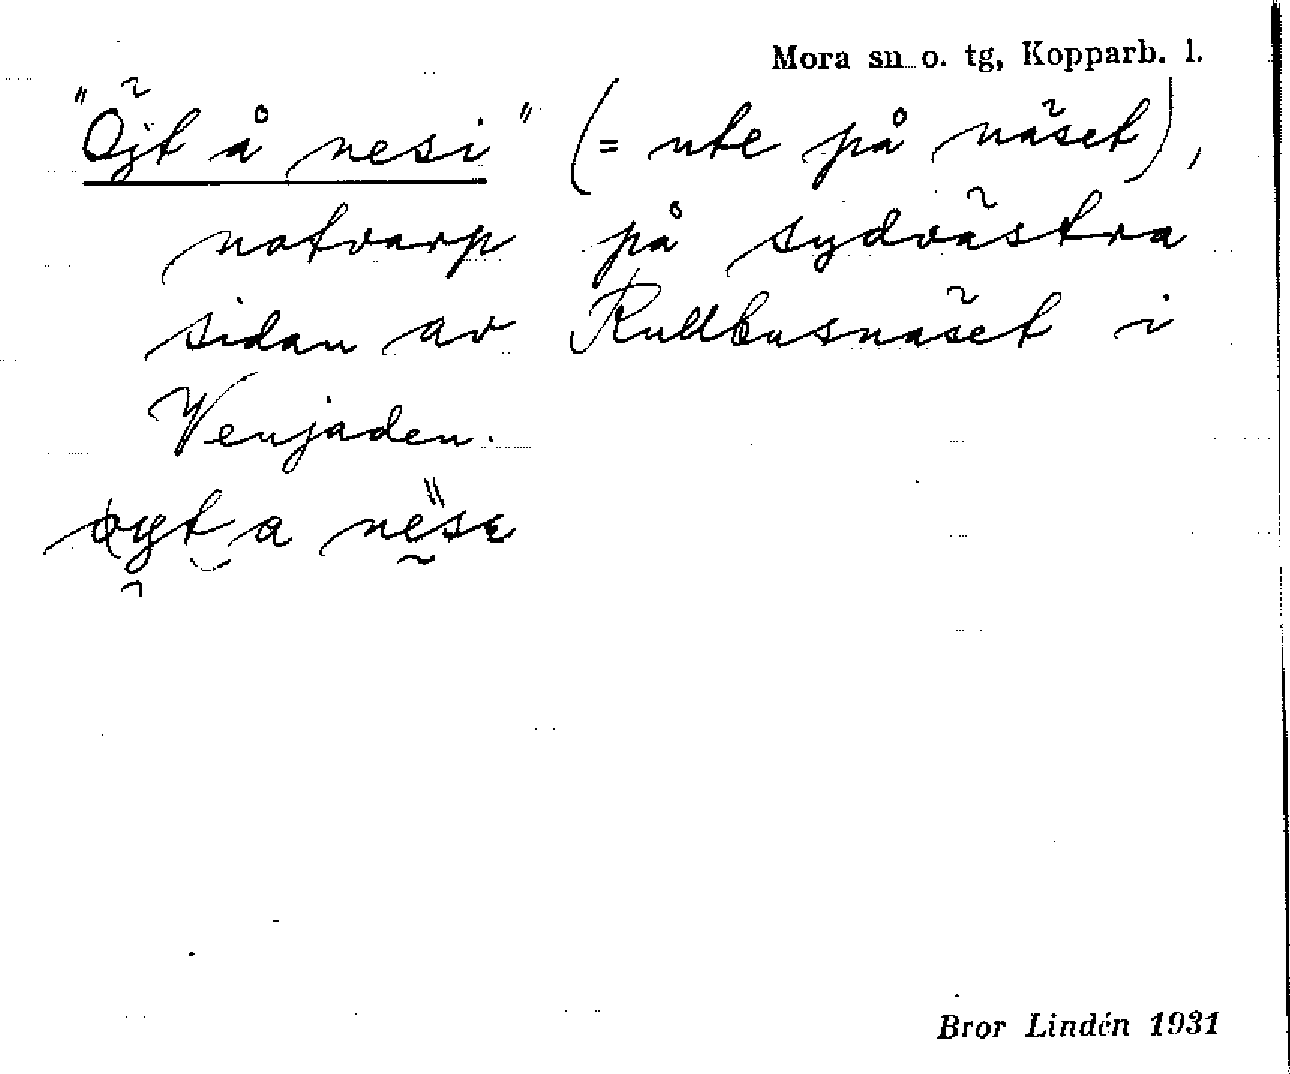 Mora sn o. tg, Kopparb. l.
"Öjt å nesi" (= ute på näset),
notvarp på sydvästra
sidan av Rullbusnäset i
Venjaden.
a
Bror Lindén 1931